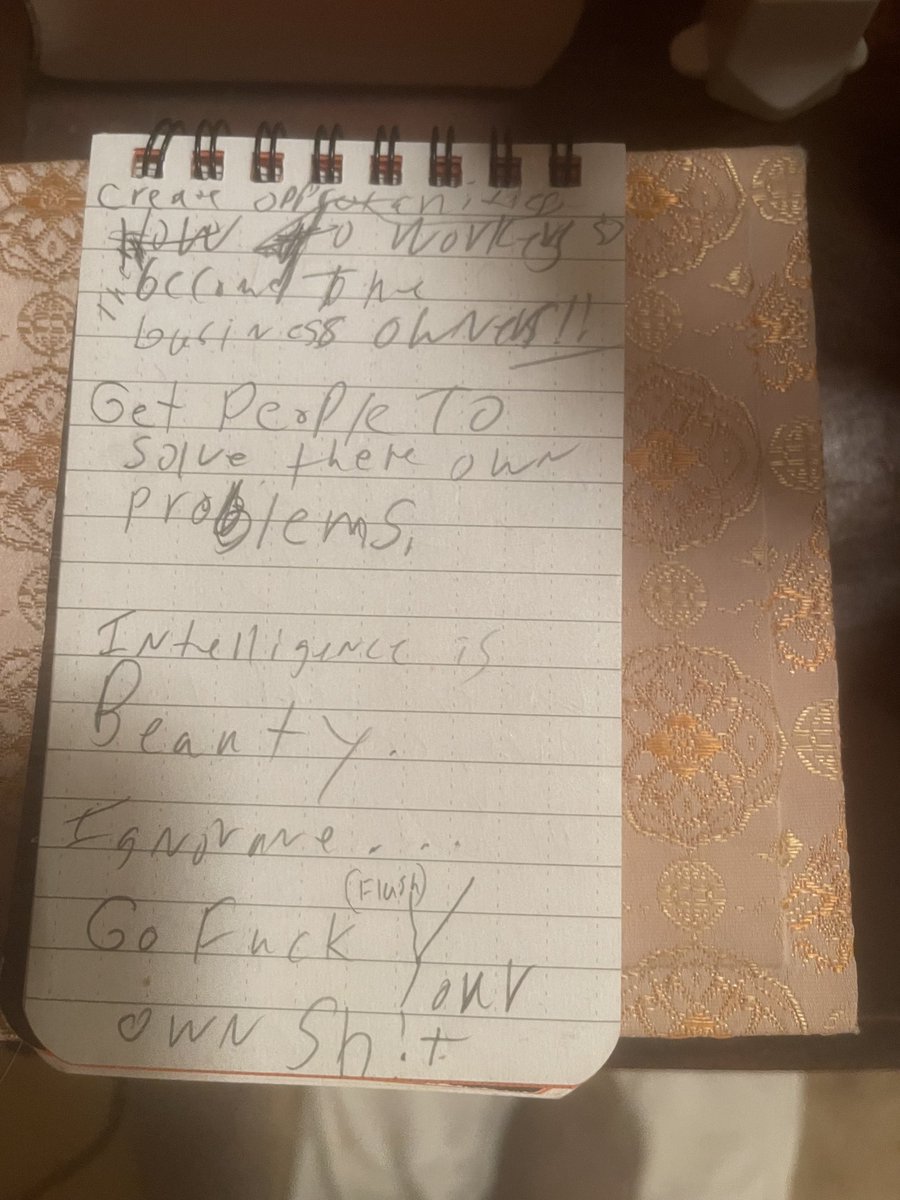 Create
to workers
the
business owners!!
Get People To
solve there own
problems,
Intelligence is
Beauty.
Ignorance....
(Flush)
Go Fuck Your
own Sh!t